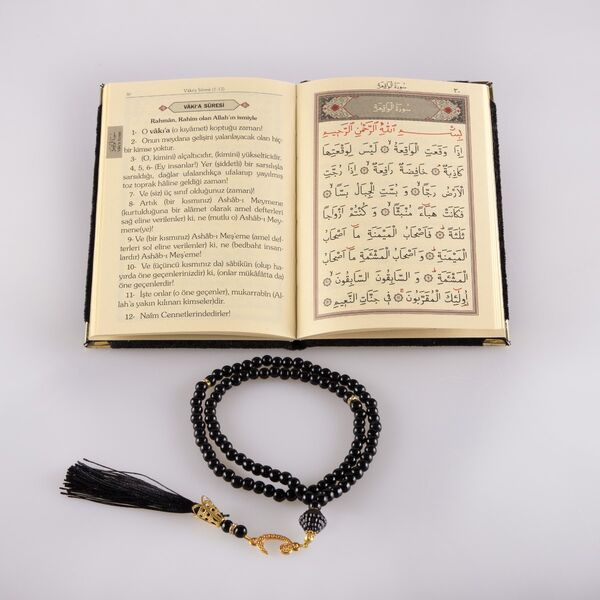 30 Vâkıa Sûresi (1-12)
VÂKI'A SÛRESİ
Rahmân, Rahîm olan Allah'ın ismiyle
1- O vâkı'a (o kıyâmet) koptuğu zaman!
2- Onun meydana gelişini yalanlayacak olan hiç-
bir kimse yoktur.
3- (O, kimini) alçaltıcıdır, (kimini) yükselticidir.
4, 5, 6- (Ey insanlar!) Yer (şiddetli) bir sarsılışla
sarsıldığı, dağlar ufalandıkça ufalanıp yayılmış
toz toprak hâline geldiği zaman!
7- Ve (siz) üç sınıf olduğunuz (zaman)!
8- Artık (bir kısmınız) Ashâb-ı Meymene
(kurtulduğuna bir alâmet olarak amel defterleri
sağ eline verilenler) ki, ne (mutlu o) Ashâb-ı Mey-
mene(ye)!
9- Ve (bir kısmınız) Ashâb-ı Meş'eme (amel def-
terleri sol eline verilenler) ki, ne (bedbaht insan-
lardır) Ashâb-ı Meş'eme!
10- Ve (üçüncü kısmınız da) sâbikûn (olup ha-
yırda öne geçenlerinizdir) ki, (onlar mükâfâtta da)
öne geçenlerdir!
11- İşte onlar (o öne geçenler), mukarrabîn (Al-
lah'a yakın kılınan kimseler)dir.
12- Naîm Cennetlerindedirler!
سورة الواقعة ٣٠
سُورَةُ الْوَاقِعَةِ
بِسْمِ اللّٰهِ الرَّحْمٰنِ الرَّحِيمِ
اِذَا وَقَعَتِ الْوَاقِعَةُ ۞ لَيْسَ لِوَقْعَتِهَا
كَاذِبَةٌ ۞ خَافِضَةٌ رَافِعَةٌ ۞ اِذَا رُجَّتِ
الْاَرْضُ رَجًّا ۞ وَ بُسَّتِ الْجِبَالُ بَسًّا ۞
فَكَانَتْ هَبَاءً مُنْبَثًّا ۞ وَ كُنْتُمْ اَزْوَاجًا
ثَلٰثَةً ۞ فَاَصْحَابُ الْمَيْمَنَةِ مَا اَصْحَابُ
الْمَيْمَنَةِ ۞ وَ اَصْحَابُ الْمَشْئَمَةِ مَا اَصْحَابُ
الْمَشْئَمَةِ ۞ وَ السَّابِقُونَ السَّابِقُونَ ۞
اُولٰئِكَ الْمُقَرَّبُونَ ۞ فِى جَنَّاتِ النَّعِيمِ ۞